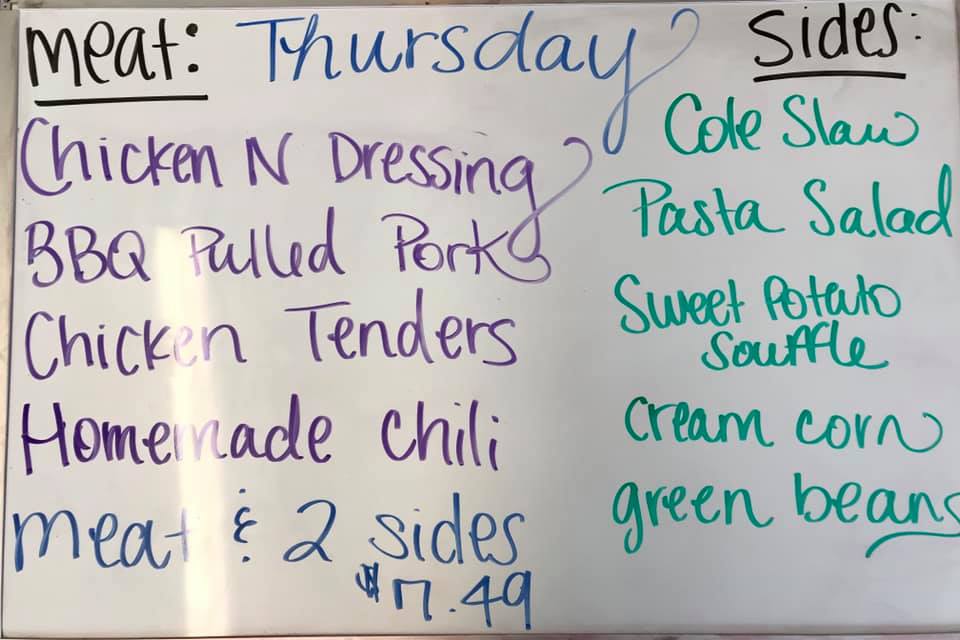 Meat: Thursday Sides:
Chicken N Dressing
BBQ Pulled Pork
Chicken Tenders
Homemade Chili
Meat & 2 sides
$7.49
Cole Slaw
Pasta Salad
Sweet Potato
Souffle
Cream corn
green beans